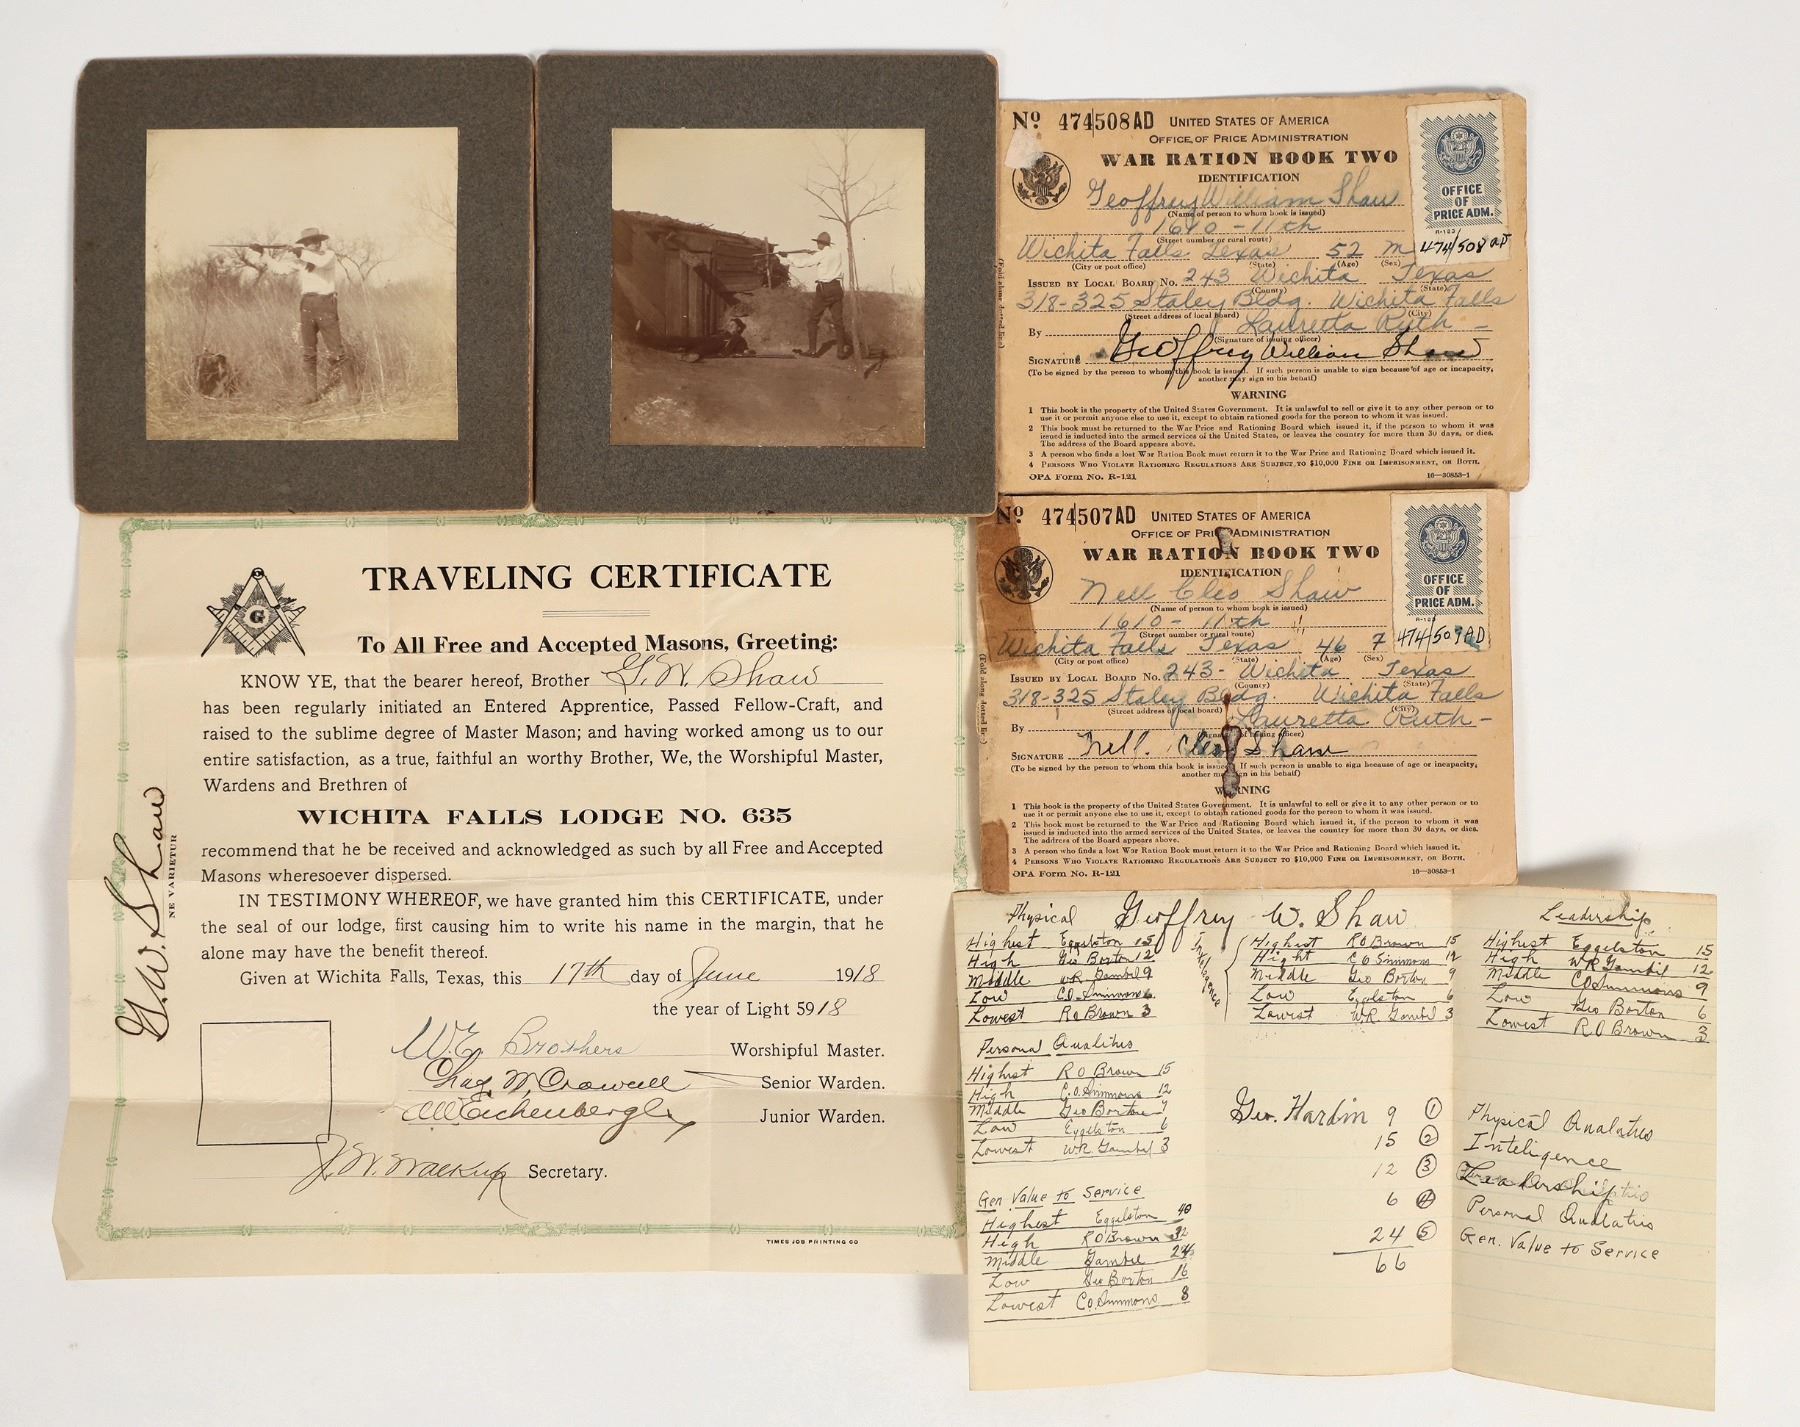 TRAVELING CERTIFICATE
To All Free and Accepted Masons, Greeting:
KNOW YE, that the bearer hereof, Brother G. W. Shaw
has been regularly initiated an Entered Apprentice, Passed Fellow-Craft, and
raised to the sublime degree of Master Mason; and having worked among us to our
entire satisfaction, as a true, faithful an worthy Brother, We, the Worshipful Master,
Wardens and Brethren of
WICHITA FALLS LODGE NO. 635
recommend that he be received and acknowledged as such by all Free and Accepted
Masons wheresoever dispersed.
IN TESTIMONY WHEREOF, we have granted him this CERTIFICATE, under
the seal of our lodge, first causing him to write his name in the margin, that he
alone may have the benefit thereof.
Given at Wichita Falls, Texas, this 17th day of June 1918
the year of Light 5918
W. E. Brothers Worshipful Master.
Chas. W. Crowell Senior Warden.
Eichenberger Junior Warden.
J. W. Walkup Secretary.
TIMES JOB PRINTING CO
G. W. Shaw
NE VARIETUR
G
No 474508AD UNITED STATES OF AMERICA
OFFICE OF PRICE ADMINISTRATION
WAR RATION BOOK TWO
IDENTIFICATION
OFFICE
OF
PRICE ADM.
R-123
474/508 AD
Geoffrey William Shaw
(Name of person to whom book is issued)
1610 - 11th
(Street number or rural route)
Wichita Falls Texas 52 m
(City or post office) (State) (Age) (Sex)
ISSUED BY LOCAL BOARD No. 243 Wichita Texas
(County) (State)
318-325 Staley Bldg. Wichita Falls
(Street address of local board) (City)
By Lauretta Ruth -
(Signature of issuing officer)
SIGNATURE Geoffrey William Shaw
(To be signed by the person to whom this book is issued. If such person is unable to sign because of age or incapacity,
another may sign in his behalf)
WARNING
1 This book is the property of the United States Government. It is unlawful to sell or give it to any other person or to
use it or permit anyone else to use it, except to obtain rationed goods for the person to whom it was issued.
2 This book must be returned to the War Price and Rationing Board which issued it, if the person to whom it was
issued is inducted into the armed services of the United States, or leaves the country for more than 30 days, or dies.
The address of the Board appears above.
3 A person who finds a lost War Ration Book must return it to the War Price and Rationing Board which issued it.
4 PERSONS WHO VIOLATE RATIONING REGULATIONS ARE SUBJECT TO $10,000 FINE OR IMPRISONMENT, OR BOTH.
OPA Form No. R-121 16—30853-1
(Fold along dotted line)
No 474507AD UNITED STATES OF AMERICA
OFFICE OF PRICE ADMINISTRATION
WAR RATION BOOK TWO
IDENTIFICATION
OFFICE
OF
PRICE ADM.
R-123
474/509AD
Nell Cleo Shaw
(Name of person to whom book is issued)
1610 - 11th
(Street number or rural route)
Wichita Falls Texas 46 F
(City or post office) (State) (Age) (Sex)
ISSUED BY LOCAL BOARD No. 243 - Wichita Texas
(County) (State)
318-325 Staley Bldg. Wichita Falls
(Street address of local board) (City)
By Lauretta Ruth -
(Signature of issuing officer)
SIGNATURE Nell Cleo Shaw
(To be signed by the person to whom this book is issued. If such person is unable to sign because of age or incapacity,
another may sign in his behalf)
WARNING
1 This book is the property of the United States Government. It is unlawful to sell or give it to any other person or to
use it or permit anyone else to use it, except to obtain rationed goods for the person to whom it was issued.
2 This book must be returned to the War Price and Rationing Board which issued it, if the person to whom it was
issued is inducted into the armed services of the United States, or leaves the country for more than 30 days, or dies.
The address of the Board appears above.
3 A person who finds a lost War Ration Book must return it to the War Price and Rationing Board which issued it.
4 PERSONS WHO VIOLATE RATIONING REGULATIONS ARE SUBJECT TO $10,000 FINE OR IMPRISONMENT, OR BOTH.
OPA Form No. R-121 16—30853-1
(Fold along dotted line)
Geoffrey W. Shaw
Physical
Highest Eggelston 15
High Geo Borton 12
Middle WR Gambil 9
Low C.O. Simmons 6
Lowest R O Brown 3
Intelligence
Highest R O Brown 15
Hight C O Simmons 12
Middle Geo Borton 9
Low Eggelston 6
Lowest W.R. Gambil 3
Leadership
Highest Eggelston 15
High W R Gambil 12
Middle C O Simmons 9
Low Geo Borton 6
Lowest R O Brown 3
Personal Qualities
Highest R O Brown 15
High C.O. Simmons 12
Middle Geo Borton 9
Low Eggelston 6
Lowest W.R. Gambil 3
Gen. Value to Service
Highest Eggelston 40
High R O Brown 32
Middle Gambil 24
Low Geo Borton 16
Lowest C.O. Simmons 8
Geo. Hardin 9 1 Physical Qualaties
15 2 Inteligence
12 3 Leadership
6 4 Personal Qualatis
24 5 Gen. Value to Service
66